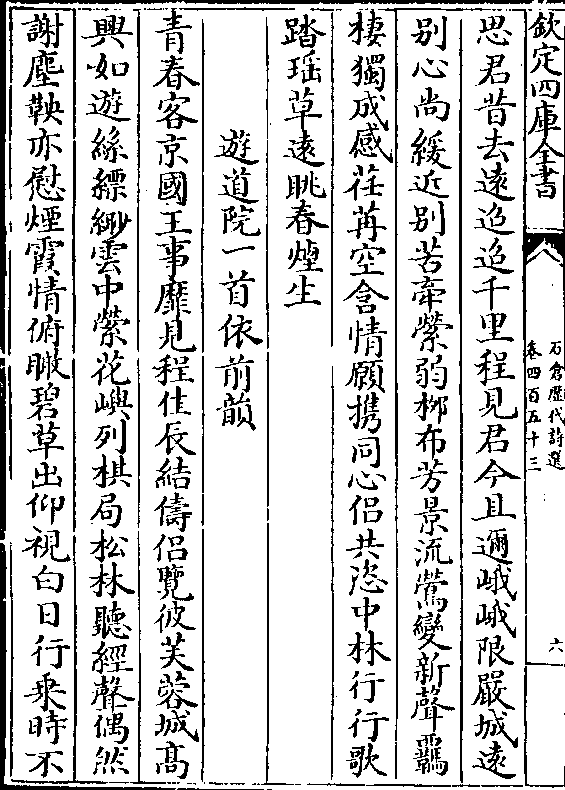 欽定四庫全書
石倉歷代詩選
卷四百五十三
六
思君昔去遠迢迢千里程見君今且邇峨峨限嚴城遠
别心尚緩近别苦牽縈弱栁布芳景流鶯變新聲羈
棲獨成感荏苒空含情願携同心侣共恣中林行行歌
踏瑶草遠眺春煙生
遊道院一首依前韻
青春客京國王事靡見程佳辰結儔侣覽彼芙蓉城髙
興如遊絲縹緲雲中縈花嶼列棋局松林聽經聲偶然
謝塵鞅亦慰煙霞情俯瞰碧草出仰視白日行乗時不